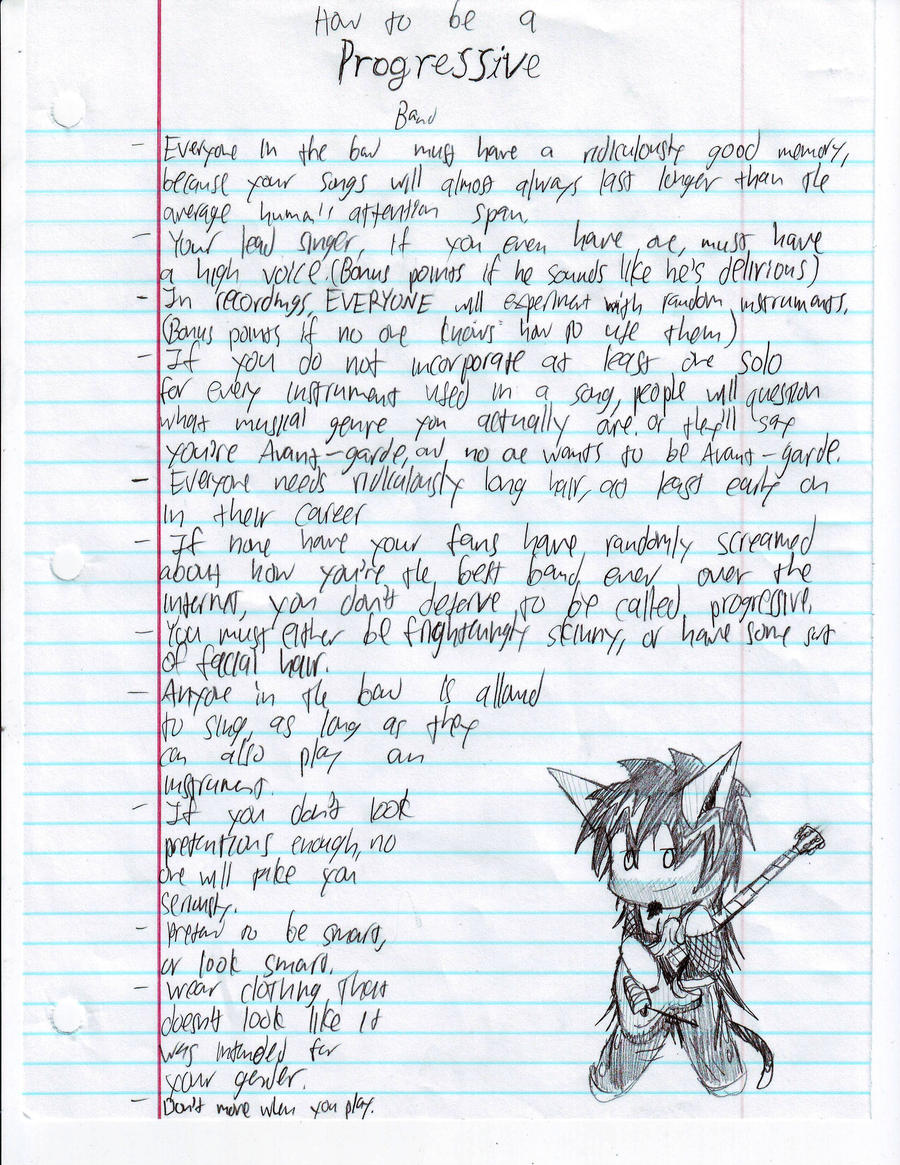 How to be a
Progressive
Band
- Everyone in the band must have a ridiculously good memory,
because your songs will almost always last longer than the
average human's attention span.
- Your lead singer, if you even have one, must have
a high voice. (Bonus points if he sounds like he's delirious)
- In recordings, EVERYONE will experiment with random instruments.
(Bonus points if no one knows how to use them)
- If you do not incorporate at least one solo
for every instrument used in a song, people will question
what musical genre you actually are, or they'll say
you're Avant-garde, and no one wants to be Avant-garde.
- Everyone needs ridiculously long hair, at least early on
in their career
- If none have your fans have randomly screamed
about how you're the best band ever over the
internet, you don't deserve to be called progressive.
- You must either be frighteningly skinny, or have some sort
of facial hair.
- Anyone in the band is allowed
to sing, as long as they
can also play an
instrument.
- If you don't look
pretentious enough, no
one will take you
seriously.
- Pretend to be smart,
or look smart.
- wear clothing that
doesn't look like it
was intended for
your gender.
- Don't move when you play.